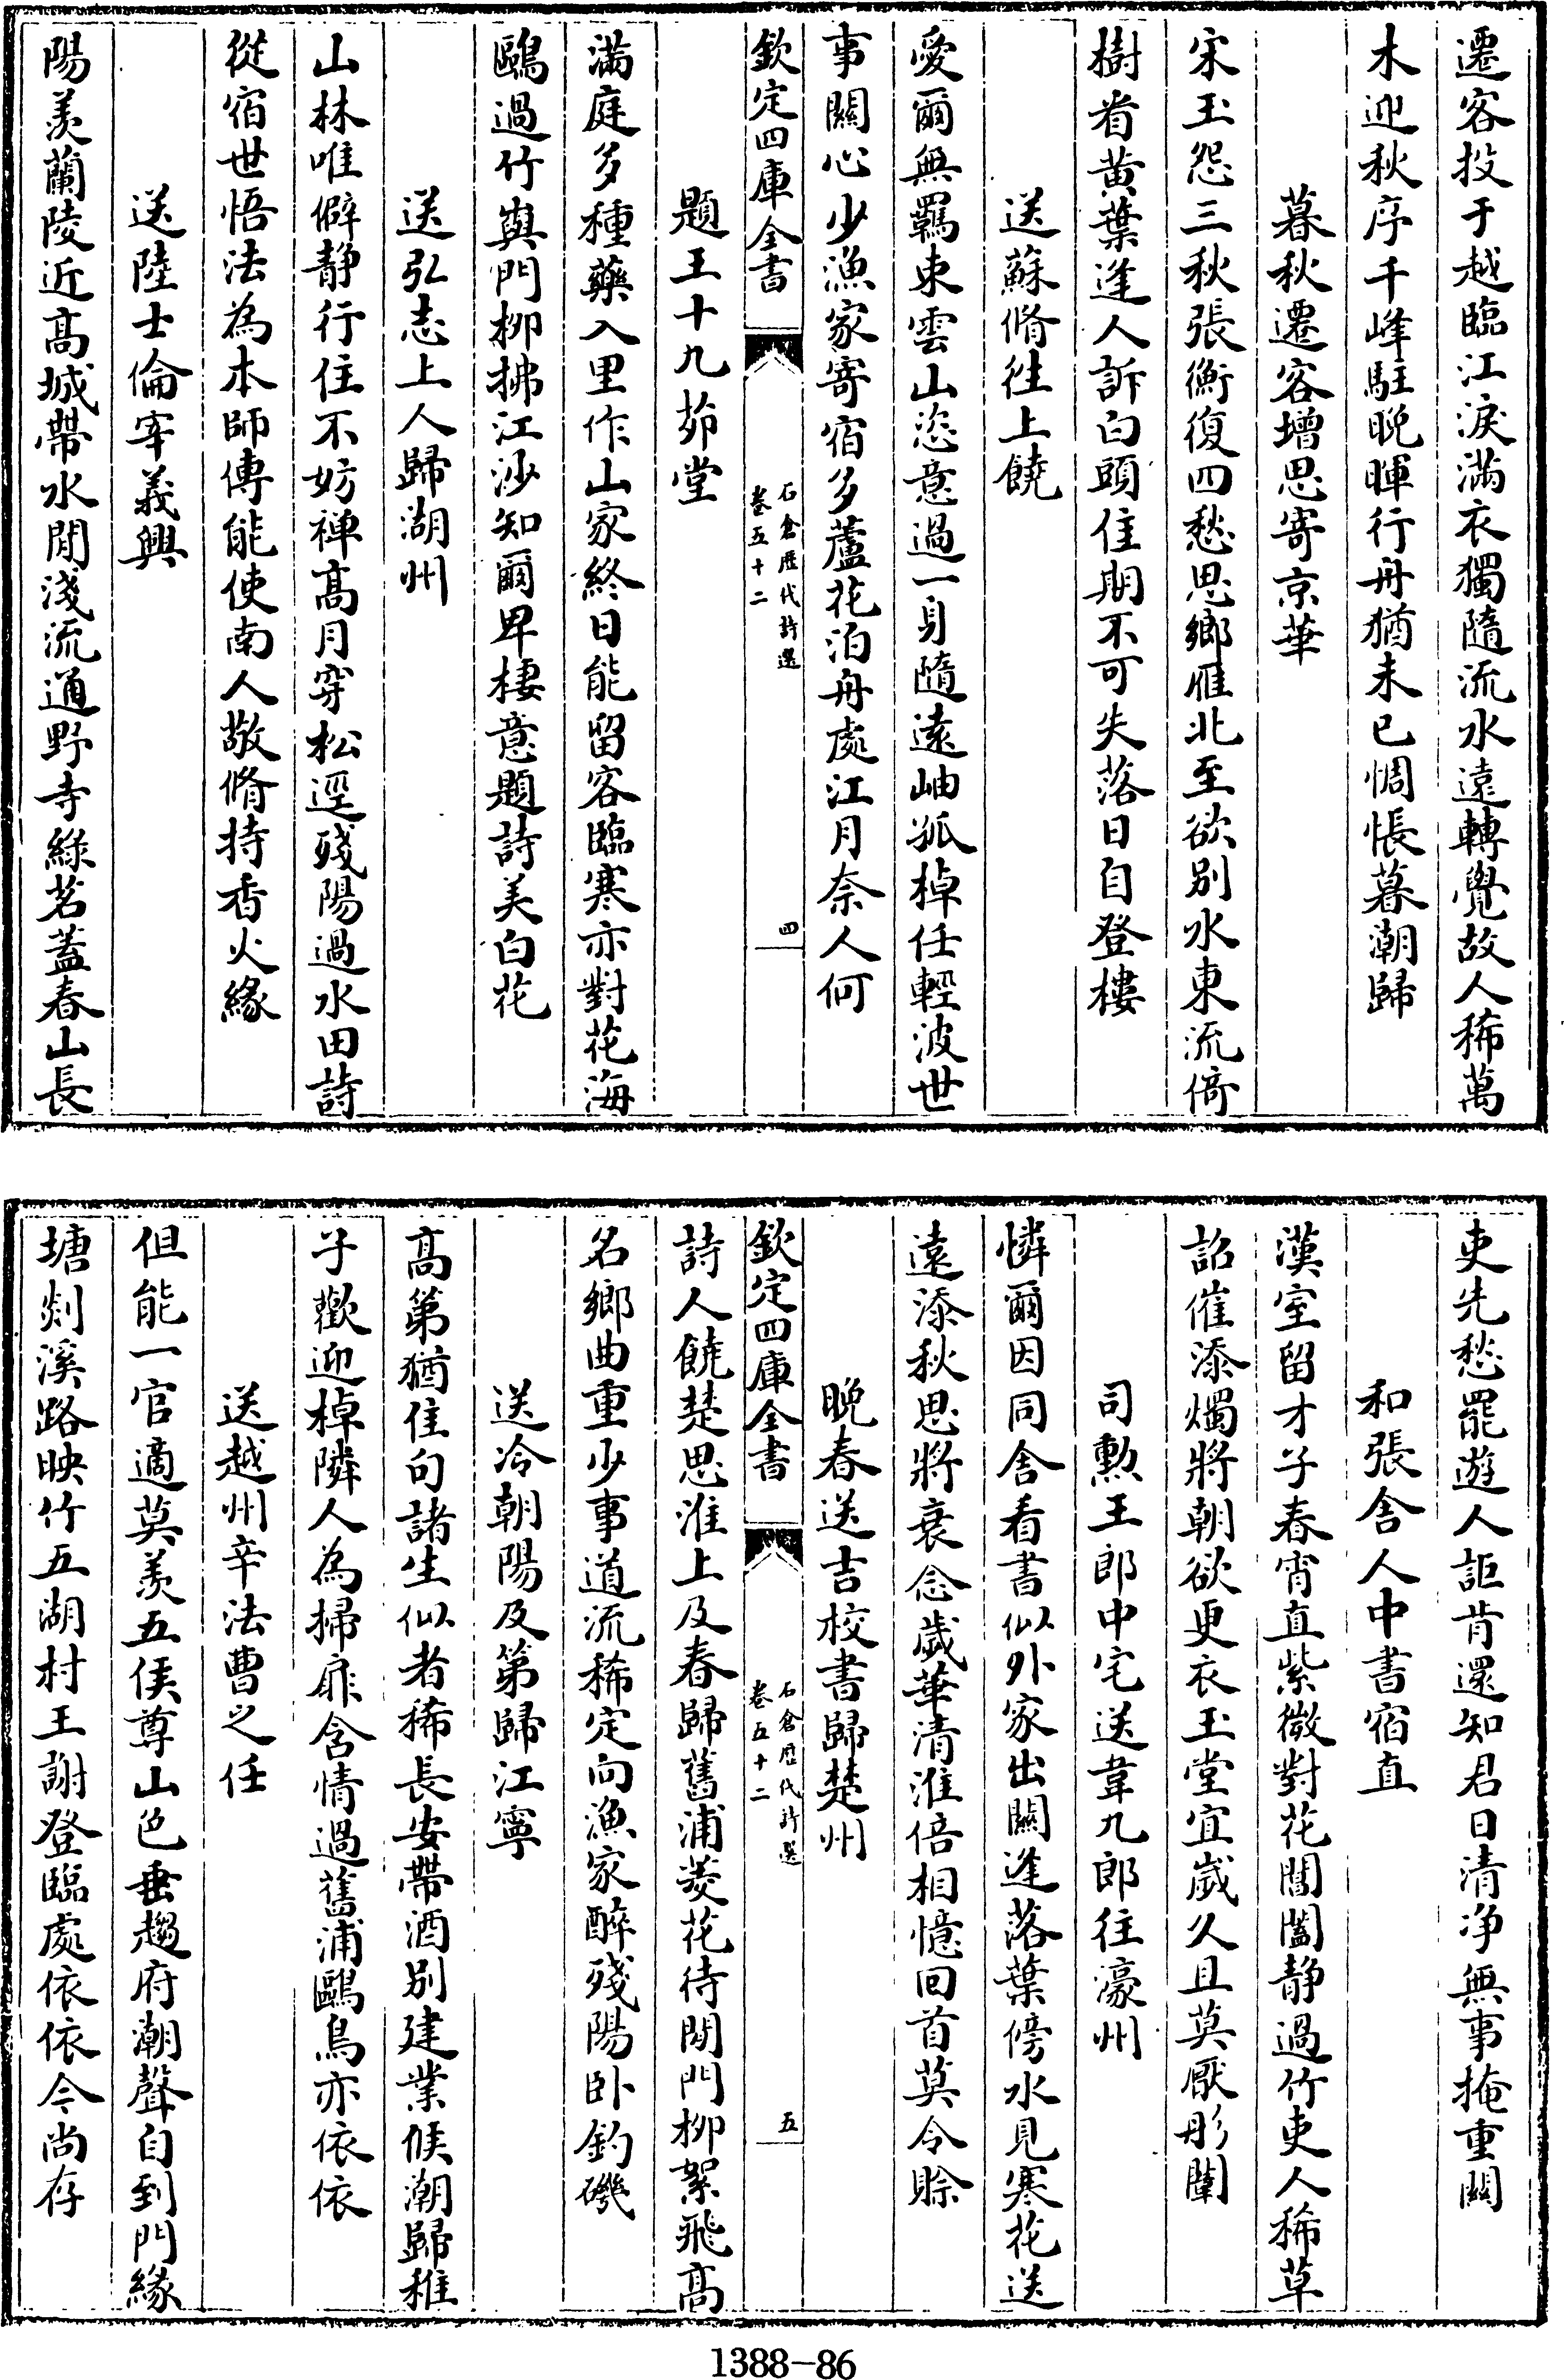 遷客投于越臨江淚滿衣獨隨流水遠轉覺故人稀萬
木迎秋序千峰駐晚暉行舟猶未已惆悵暮潮歸
暮秋遷客增思寄京華
宋玉怨三秋張衡復四愁思鄉雁北至欲别水東流倚
樹看黄葉逢人訴白頭佳期不可失落日自登樓
送蘇脩往上饒
愛爾無羈束雲山恣意過一身隨遠岫孤棹任輕波世
事關心少漁家寄宿多蘆花泊舟處江月奈人何
欽定四庫全書
石倉歷代詩選
卷五十二
四
題王十九茆堂
滿庭多種藥入里作山家終日能留客臨寒亦對花海
鷗過竹嶼門柳拂江沙知爾卑棲意題詩美白花
送弘志上人歸湖州
山林唯僻静行住不妨禪髙月穿松逕殘陽過水田詩
從宿世悟法為本師傳能使南人敬脩持香火緣
送陸士倫宰義興
陽羨蘭陵近髙城帶水閒淺流通野寺綠茗蓋春山長
吏先愁罷遊人詎肯還知君日清净無事掩重關
和張舍人中書宿直
漢室留才子春宵直紫微對花閶闔静過竹吏人稀草
詔催添燭將朝欲更衣玉堂宜嵗久且莫厭彤闈
司勲王郎中宅送韋九郎往濠州
憐爾因同舍看書似外家出關逢落葉傍水見寒花送
遠添秋思將衰念歲華清淮倍相憶回首莫令賒
晚春送吉校書歸楚州
欽定四庫全書
石倉歷代詩選
卷五十二
五
詩人饒楚思淮上及春歸舊浦菱花待閒門柳絮飛髙
名鄉曲重少事道流稀定向漁家醉殘陽卧釣磯
送冷朝陽及第歸江寧
髙第猶佳句諸生似者稀長安帶酒别建業候潮歸稚
子歡迎棹隣人為掃扉含情過舊浦鷗鳥亦依依
送越州辛法曹之任
但能一官適莫羨五侯尊山色垂趨府潮聲自到門緣
塘剡溪路映竹五湖村王謝登臨處依依今尚存
1388-86